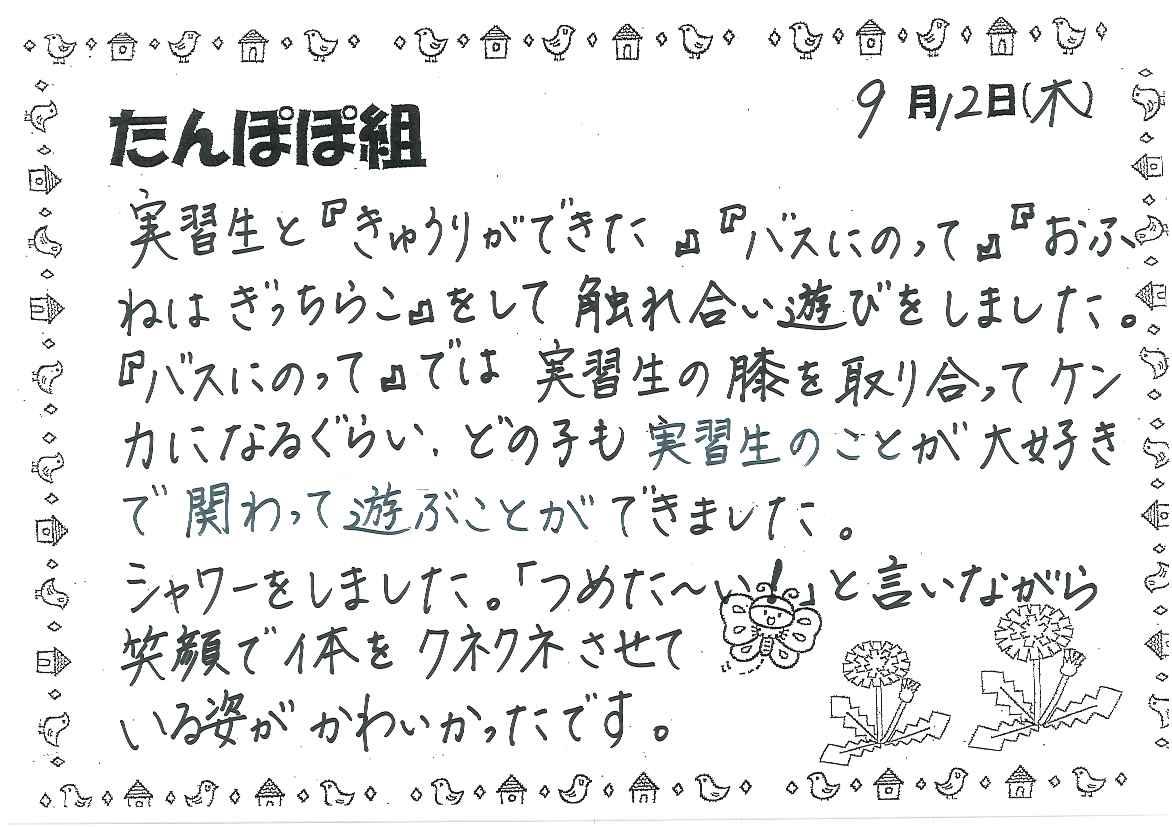 9月12日(木)
たんぽぽ組
実習生と『きゅうりができた』『バスにのって』『おふ
ねはぎっちらこ』をして触れ合い遊びをしました。
『バスにのって』では実習生の膝を取り合ってケン
カになるぐらい、どの子も実習生のことが大好き
で関わって遊ぶことができました。
シャワーをしました。「つめた〜い!」と言いながら
笑顔で体をクネクネさせて
いる姿がかわいかったです。